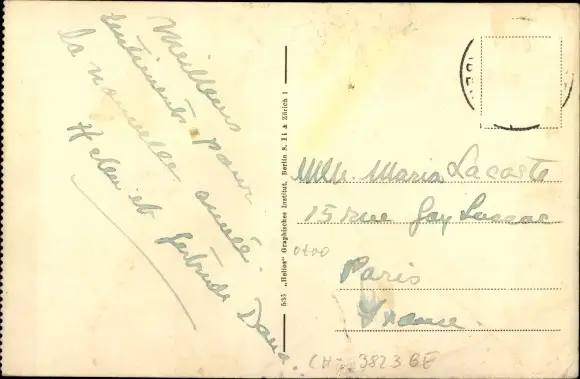 Meilleurs
sentiments pour
la nouvelle année.
Helen et Gertrude Dana
535 „Helios“ Graphisches Institut, Berlin S. 14 & Zürich 1
Mlle. Maria Lacoste
15 rue Gay Lussac
Paris
France
CH- 3823 BE